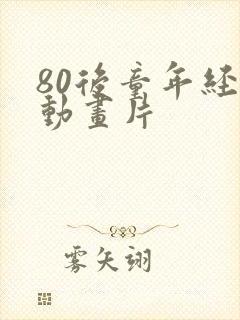 80後童年經
動畫片
雾矢翊